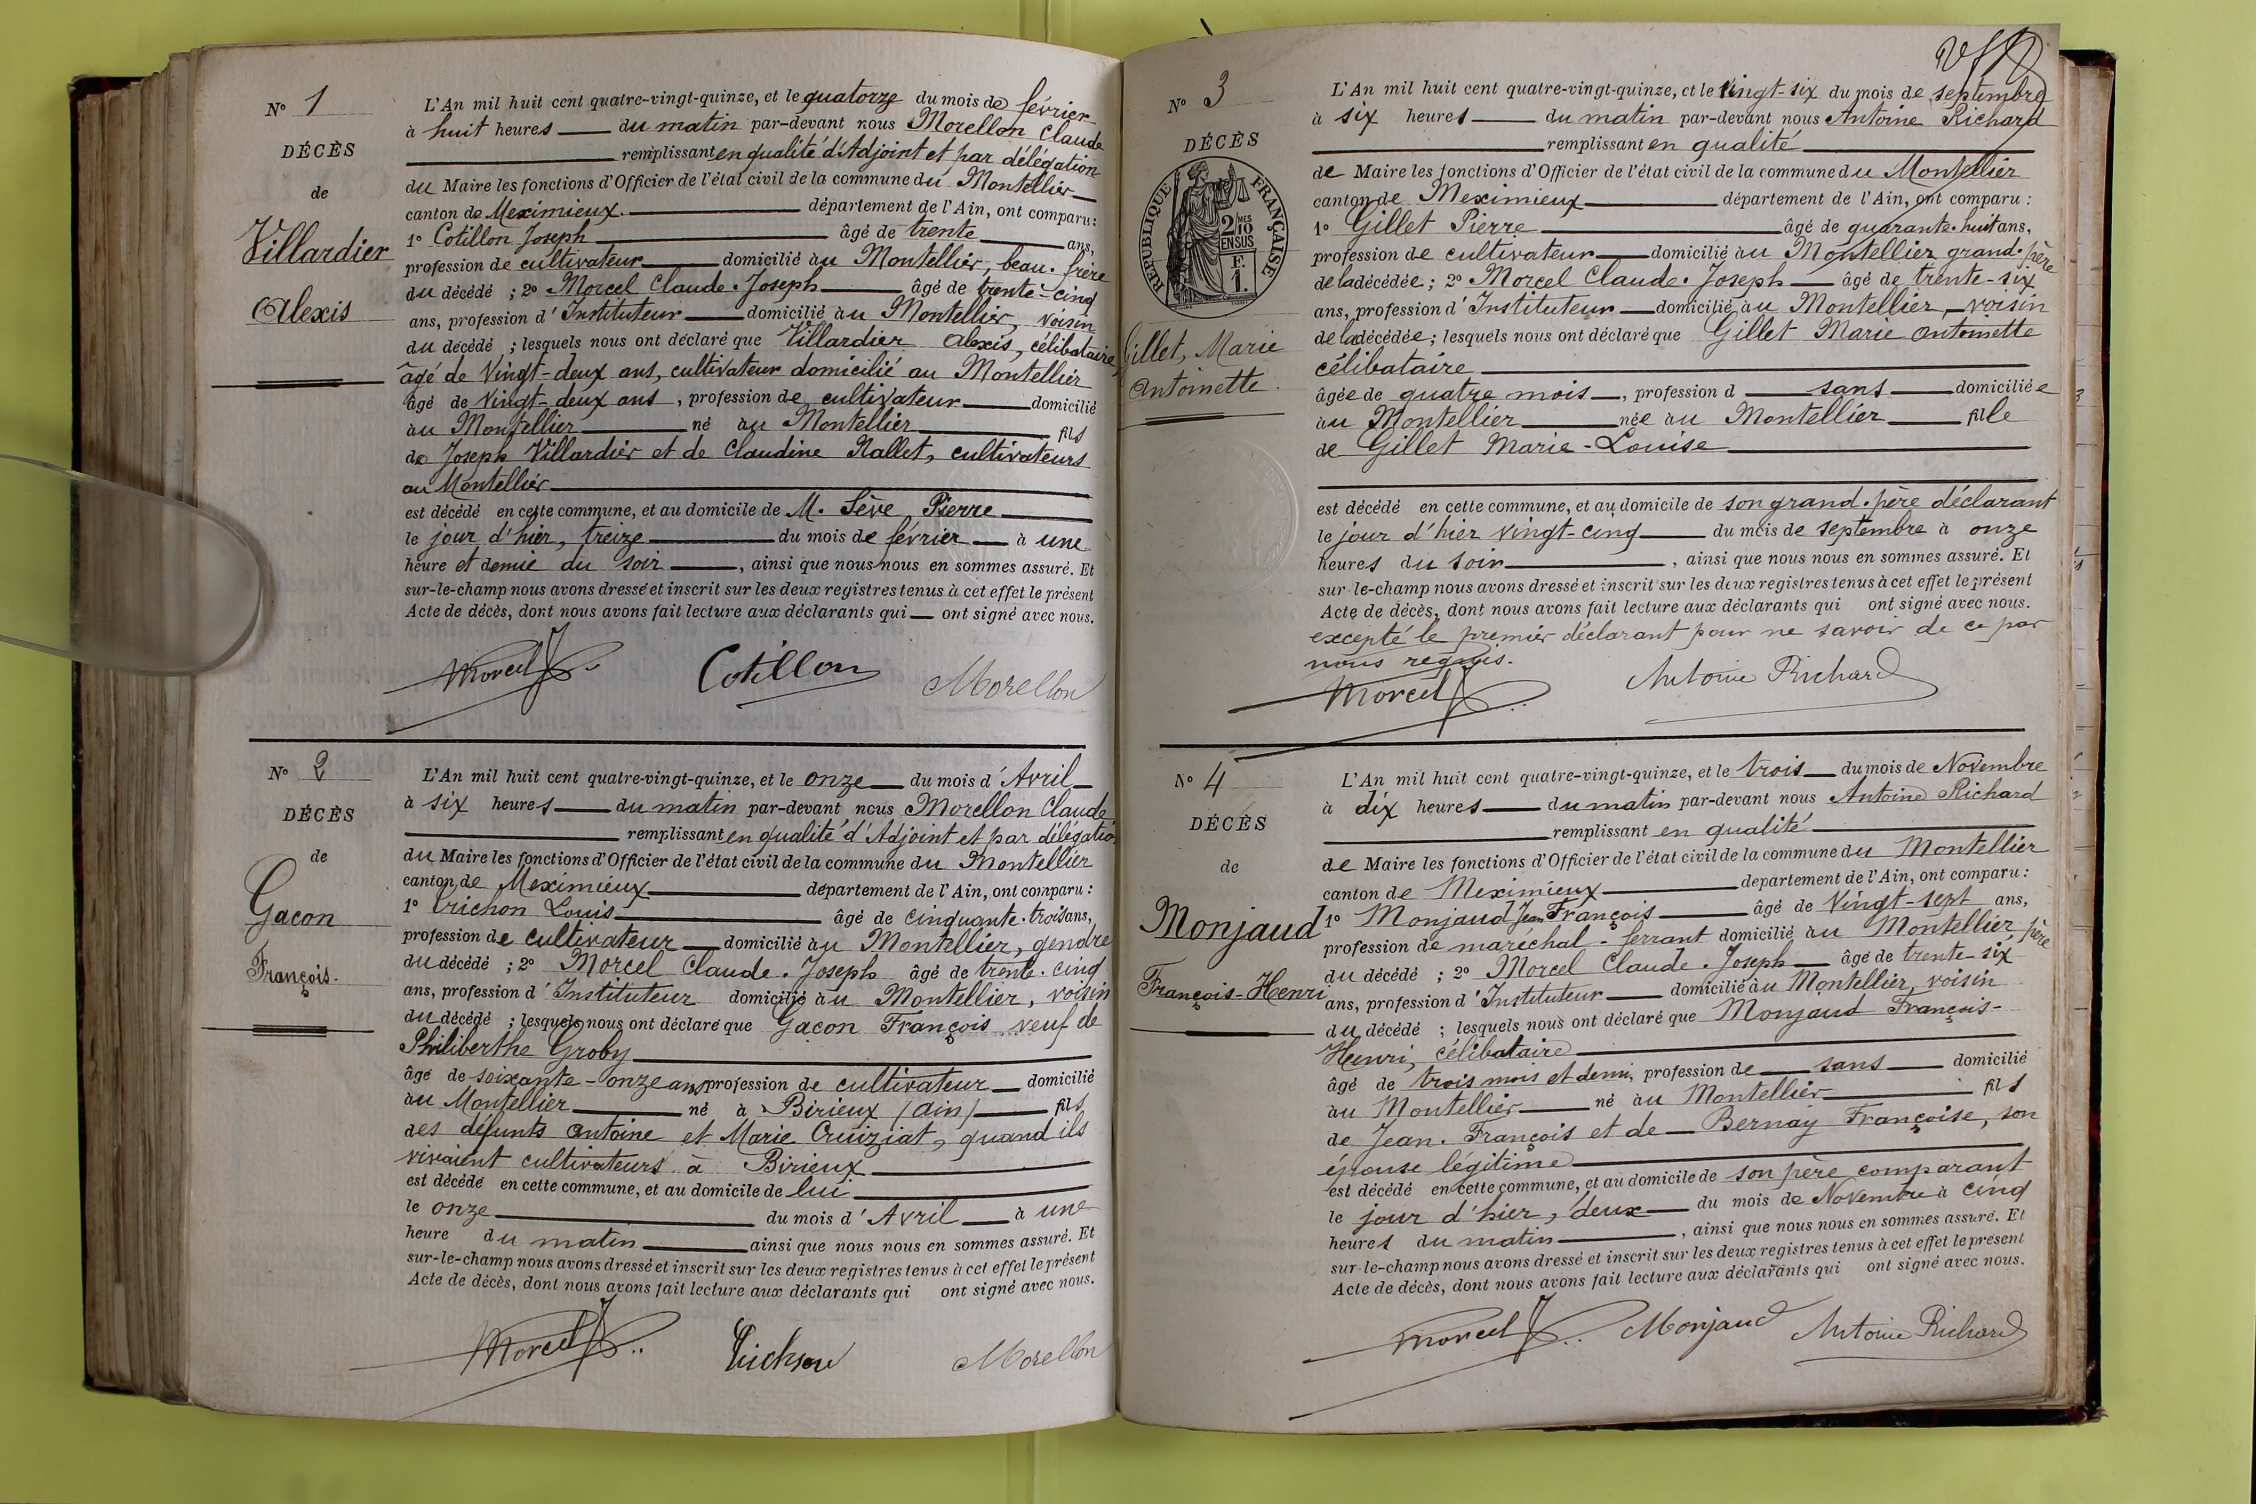 N° 1
DÉCÈS
de
Villardier
Alexis
L'An mil huit cent quatre-vingt-quinze, et le quatorze du mois de février
à huit heures du matin par-devant nous Morellon Claude
remplissant en qualité d'Adjoint et par délégation
du Maire les fonctions d'Officier de l'état civil de la commune du Montellier
canton de Meximieux département de l'Ain, ont comparu :
1° Cotillon Joseph âgé de trente ans,
profession de cultivateur domicilié au Montellier, beau-frère
du décédé ; 2° Morcel Claude-Joseph âgé de trente-cinq
ans, profession d'Instituteur domicilié au Montellier, voisin
du décédé ; lesquels nous ont déclaré que Villardier Alexis, célibataire,
âgé de vingt-deux ans, cultivateur domicilié au Montellier
âgé de vingt-deux ans, profession de cultivateur domicilié
au Montellier né au Montellier fils
de Joseph Villardier et de Claudine Rallet, cultivateurs
au Montellier
est décédé en cette commune, et au domicile de M. Sève, Pierre
le jour d'hier, treize du mois de février à une
heure et demie du soir, ainsi que nous nous en sommes assuré. Et
sur-le-champ nous avons dressé et inscrit sur les deux registres tenus à cet effet le présent
Acte de décès, dont nous avons fait lecture aux déclarants qui ont signé avec nous.
Morcel Cotillon Morellon
N° 2
DÉCÈS
de
Gacon
François.
L'An mil huit cent quatre-vingt-quinze, et le onze du mois d'Avril
à six heures du matin par-devant nous Morellon Claude
remplissant en qualité d'Adjoint et par délégation
du Maire les fonctions d'Officier de l'état civil de la commune du Montellier
canton de Meximieux département de l'Ain, ont comparu :
1° Trichon Louis âgé de cinquante-trois ans,
profession de cultivateur domicilié au Montellier, gendre
du décédé ; 2° Morcel Claude-Joseph âgé de trente-cinq
ans, profession d'Instituteur domicilié au Montellier, voisin
du décédé ; lesquels nous ont déclaré que Gacon François veuf de
Philiberthe Groby
âgé de soixante-onze ans profession de cultivateur domicilié
au Montellier né à Birieux (Ain) fils
des défunts Antoine et Marie Cruiziat, quand ils
vivaient cultivateurs à Birieux
est décédé en cette commune, et au domicile de lui
le onze du mois d'Avril à une
heure du matin ainsi que nous nous en sommes assuré. Et
sur-le-champ nous avons dressé et inscrit sur les deux registres tenus à cet effet le présent
Acte de décès, dont nous avons fait lecture aux déclarants qui ont signé avec nous.
Morcel Trichon Morellon
N° 3
DÉCÈS
RÉPUBLIQUE FRANÇAISE
2/10 MES
EN SUS
F.
1.
Gillet, Marie
Antoinette.
L'An mil huit cent quatre-vingt-quinze, et le vingt-six du mois de septembre
à six heures du matin par-devant nous Antoine Richard
remplissant en qualité
de Maire les fonctions d'Officier de l'état civil de la commune du Montellier
canton de Meximieux département de l'Ain, ont comparu :
1° Gillet Pierre âgé de quarante-huit ans,
profession de cultivateur domicilié au Montellier grand-père
de la décédée ; 2° Morcel Claude-Joseph âgé de trente-six
ans, profession d'Instituteur domicilié au Montellier, voisin
de la décédée ; lesquels nous ont déclaré que Gillet Marie Antoinette
célibataire
âgée de quatre mois, profession d sans domiciliée
au Montellier née au Montellier fille
de Gillet Marie-Louise
est décédé en cette commune, et au domicile de son grand-père déclarant
le jour d'hier vingt-cinq du mois de septembre à onze
heures du soir, ainsi que nous nous en sommes assuré. Et
sur-le-champ nous avons dressé et inscrit sur les deux registres tenus à cet effet le présent
Acte de décès, dont nous avons fait lecture aux déclarants qui ont signé avec nous.
excepté le premier déclarant pour ne savoir de ce par
nous requis.
Morcel Antoine Richard
N° 4
DÉCÈS
de
Monjaud
François-Henri
L'An mil huit cent quatre-vingt-quinze, et le trois du mois de Novembre
à dix heures du matin par-devant nous Antoine Richard
remplissant en qualité
de Maire les fonctions d'Officier de l'état civil de la commune du Montellier
canton de Meximieux département de l'Ain, ont comparu :
1° Monjaud Jean François âgé de vingt-sept ans,
profession de maréchal-ferrant domicilié au Montellier, père
du décédé ; 2° Morcel Claude-Joseph âgé de trente-six
ans, profession d'Instituteur domicilié au Montellier, voisin
du décédé ; lesquels nous ont déclaré que Monjaud François-
Henri, célibataire
âgé de trois mois et demi, profession de sans domicilié
au Montellier né au Montellier fils
de Jean-François et de Bernay Françoise, son
épouse légitime
est décédé en cette commune, et au domicile de son père comparant
le jour d'hier, deux du mois de Novembre à cinq
heures du matin, ainsi que nous nous en sommes assuré. Et
sur-le-champ nous avons dressé et inscrit sur les deux registres tenus à cet effet le présent
Acte de décès, dont nous avons fait lecture aux déclarants qui ont signé avec nous.
Morcel Monjaud Antoine Richard